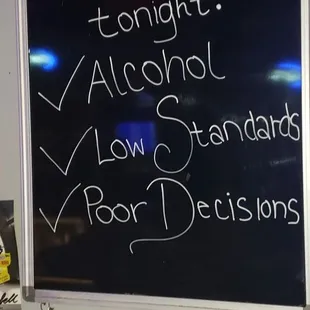 tonight:
✓ Alcohol
✓ Low Standards
✓ Poor Decisions